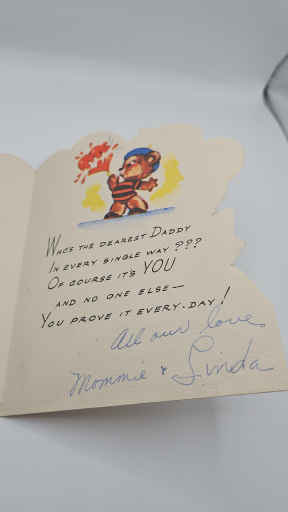 Who's the dearest Daddy
In every single way ???
Of course it's YOU
and no one else—
You prove it every-day!
All our love,
Mommie & Linda